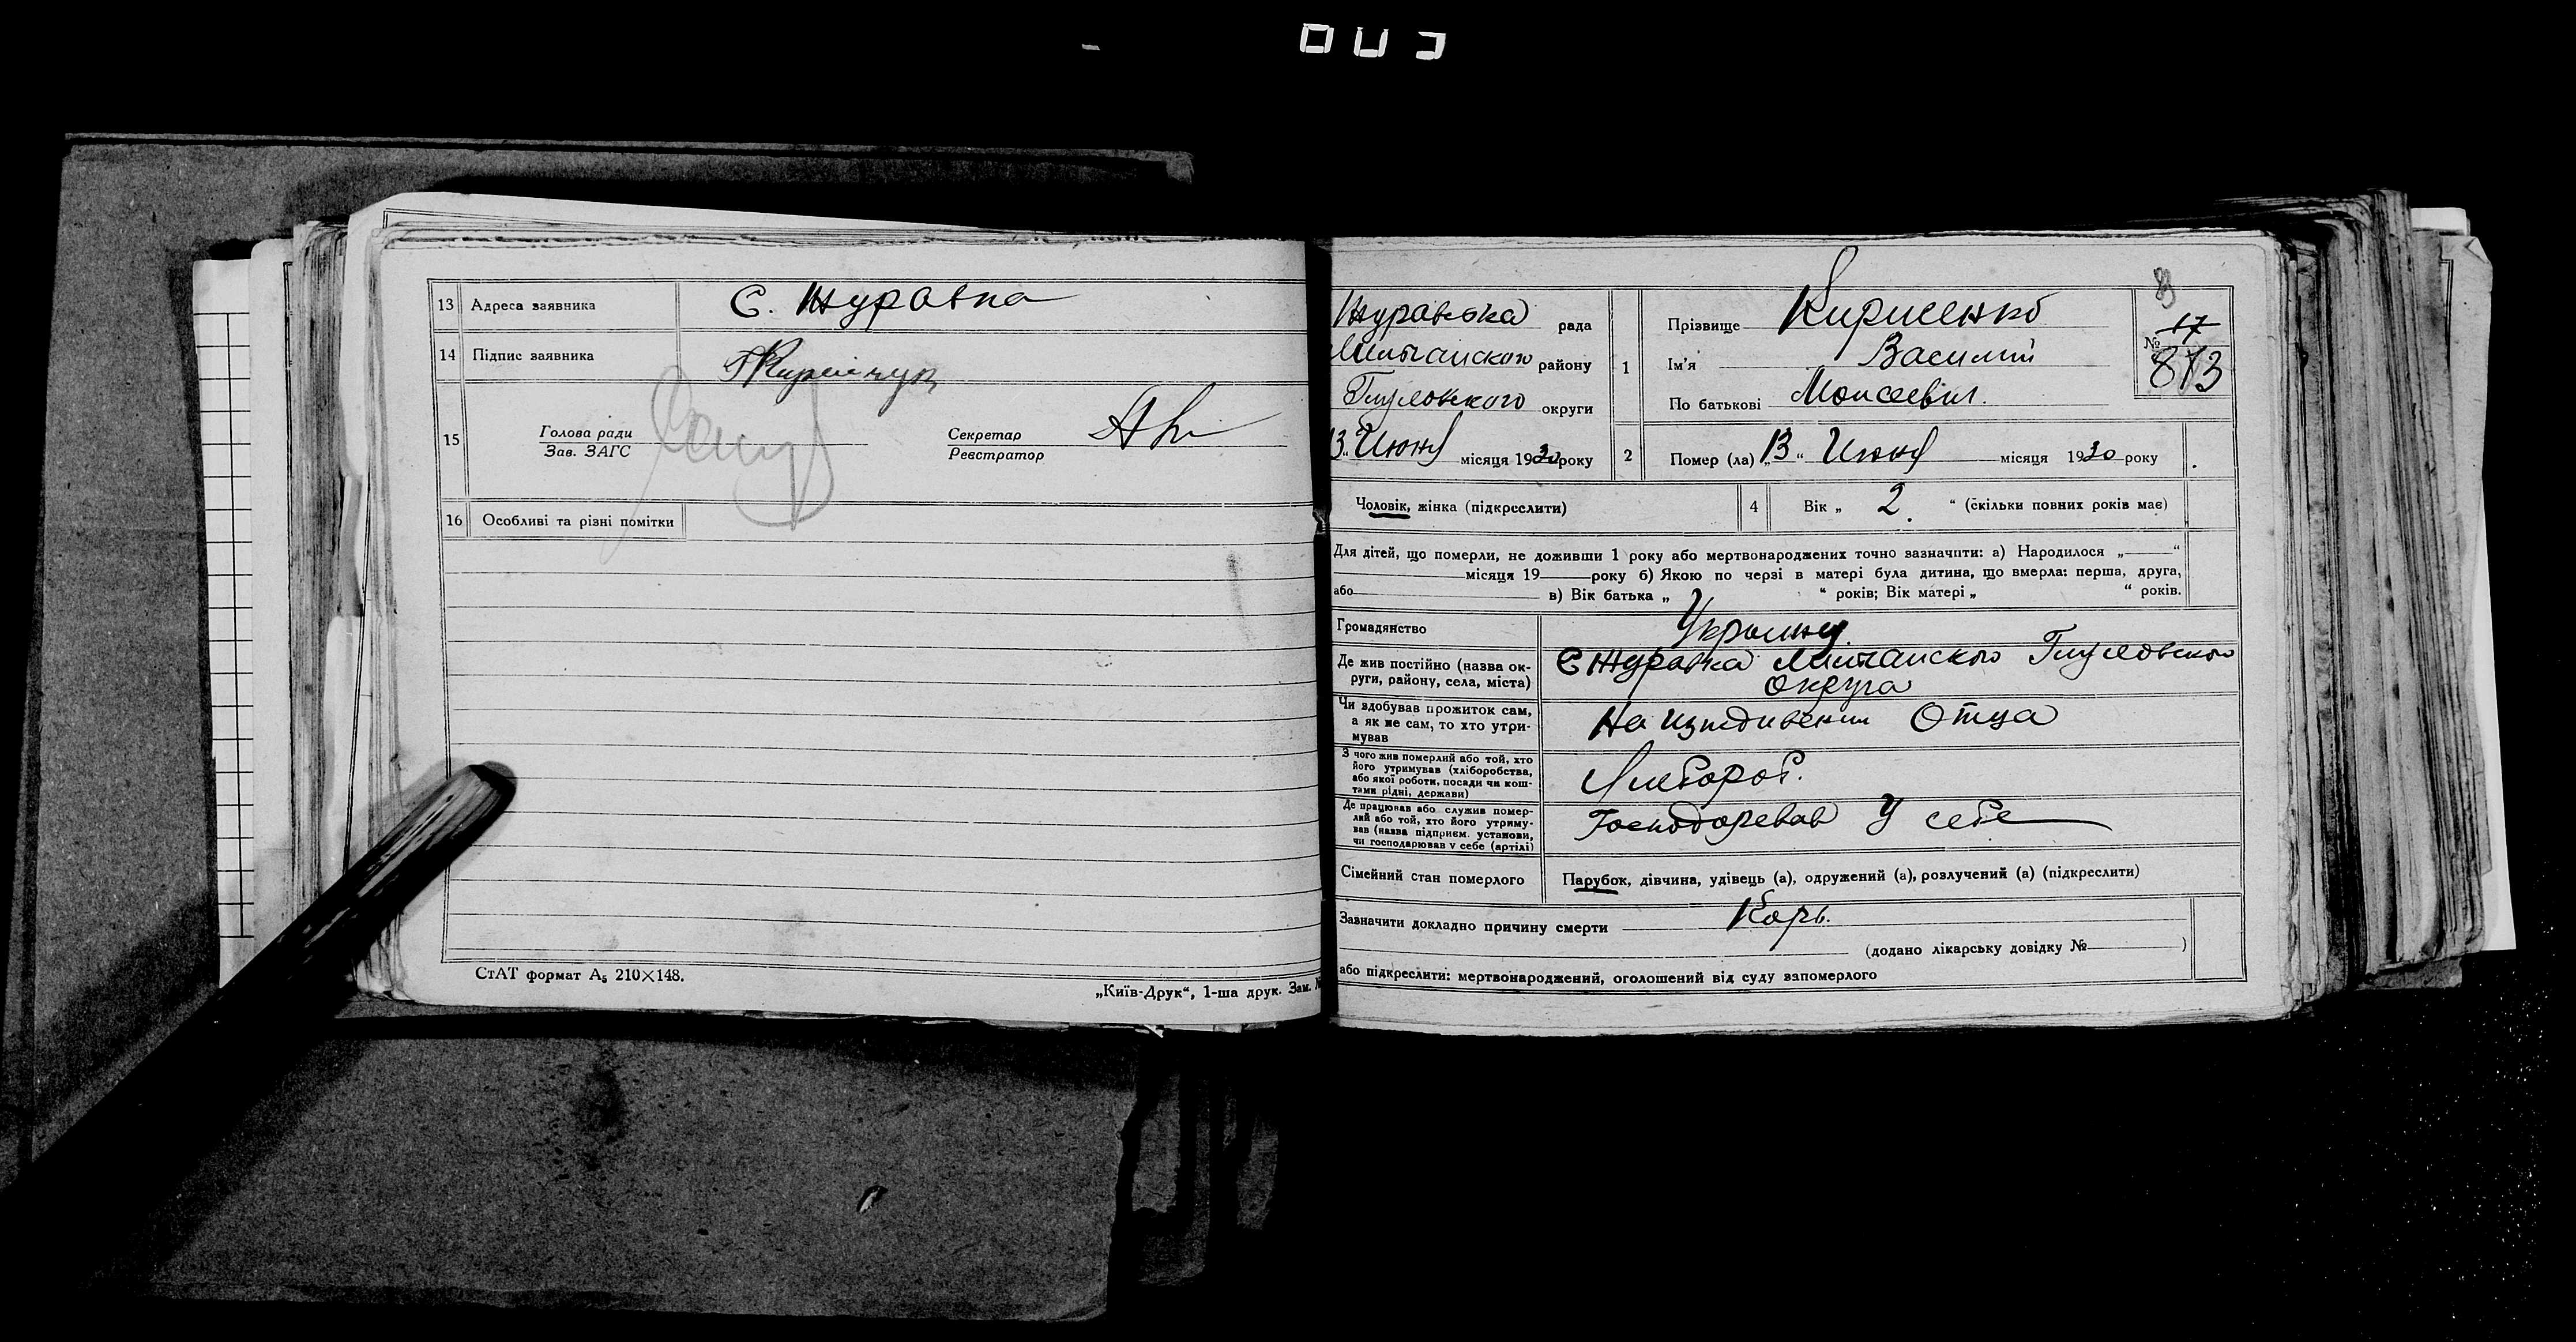 13 Адреса заявника С. Журавка
14 Підпис заявника
15 Голова ради
Зав. ЗАГС
Секретар
Реєстратор
16 Особливі та різні помітки
СтАТ формат А5 210×148.
„Київ-Друк“, 1-ша друк. Зам.
Журавська рада
району
Глуховского округи
13 „ Июня місяця 1930 року
1 Прізвище Кириенко
Ім'я Василий
По батькові Моисеевич.
№ 17
813
8
2 Помер (ла) „13“ Июня місяця 1930 року
Чоловік, жінка (підкреслити)
4 Вік „ 2. “ (скільки повних років має)
Для дітей, що померли, не доживши 1 року або мертвонароджених точно зазначити: а) Народилося „ “
місяця 19 року б) Якою по черзі в матері була дитина, що вмерла: перша, друга,
або в) Вік батька „ “ років; Вік матері „ “ років.
Громадянство
Де жив постійно (назва ок-
руги, району, села, міста)
С Журавка Глуховского
Округа
Чи здобував прожиток сам,
а як не сам, то хто утри-
мував
На иждивении Отца
З чого жив померлий або той, хто
його утримував (хліборобства,
або якої роботи, посади чи кош-
тами рідні, держави)
Хлебороб.
Де працював або служив помер-
лий або той, хто його утриму-
вав (назва підприєм. установи,
чи господарював у себе (артілі)
Господоревав У себе
Сімейний стан померлого Парубок, дівчина, удівець (а), одружений (а), розлучений (а) (підкреслити)
Зазначити докладно причину смерти Корь.
(додано лікарську довідку № )
або підкреслити: мертвонароджений, оголошений від суду запомерлого